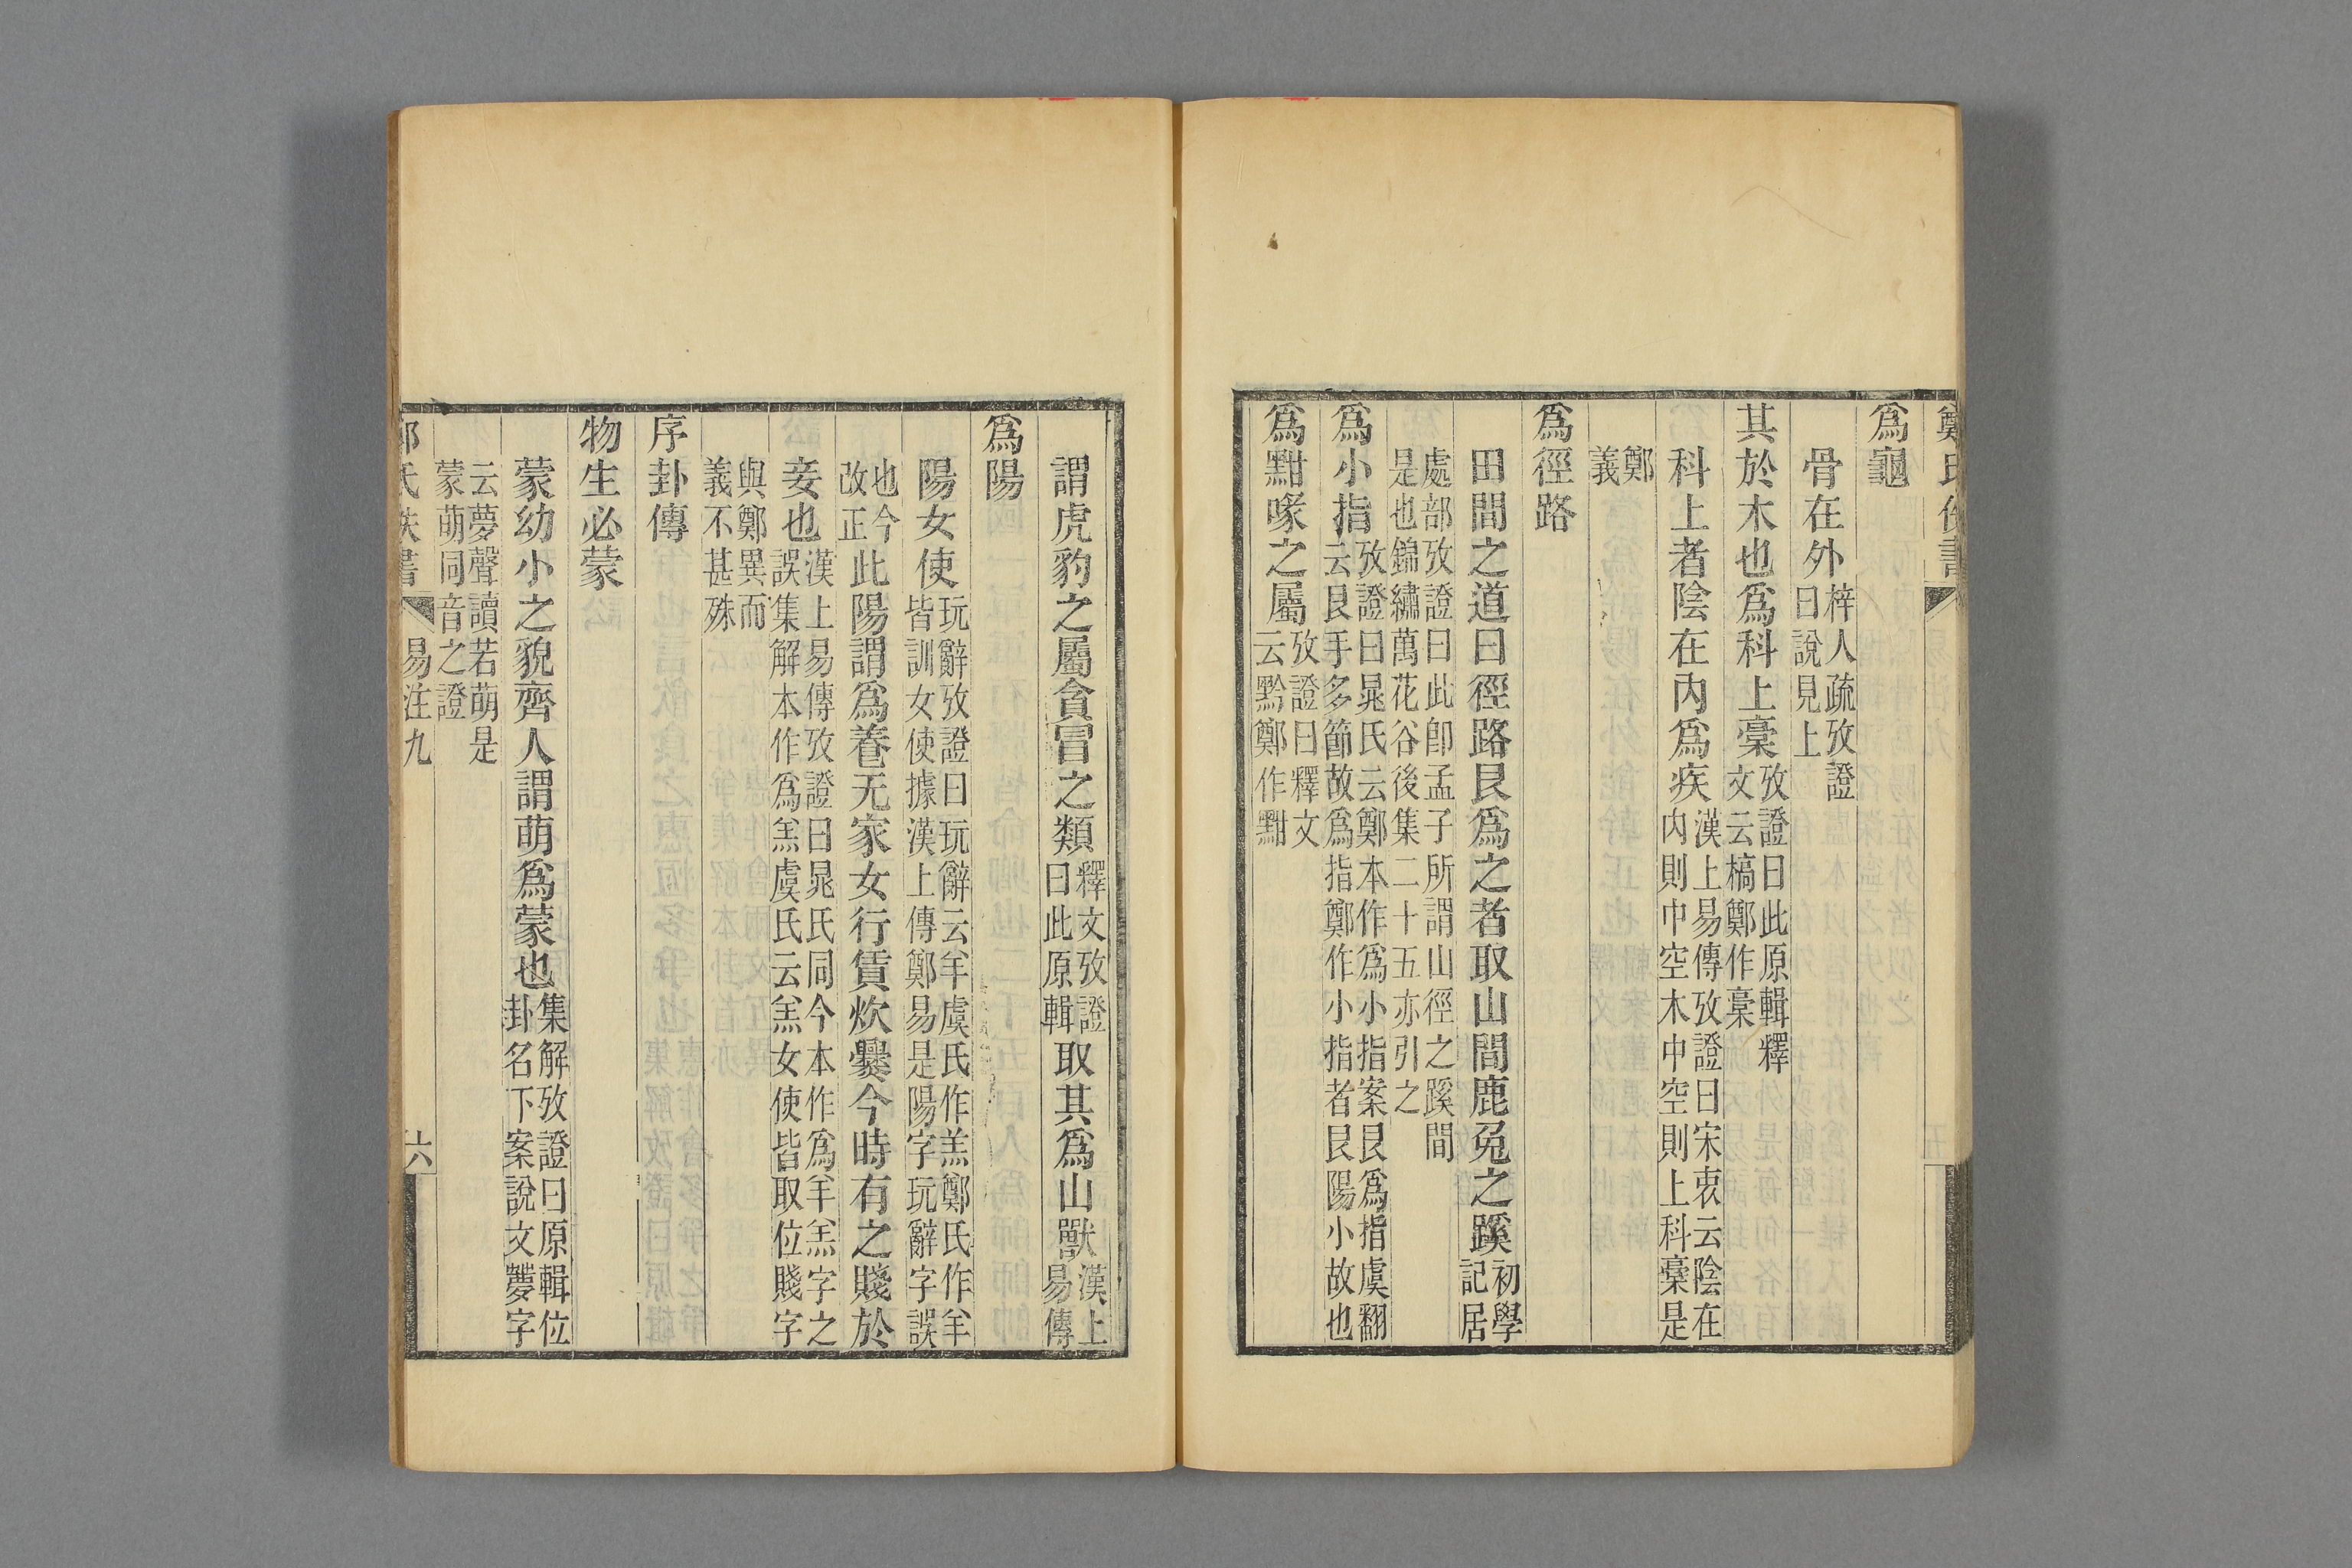 鄭氏佚書
爲龜
骨在外梓人疏攷證
曰說見上
其於木也爲科上稾攷證曰此原輯釋
文云槁鄭作稾
科上者陰在內爲疾漢上易傳攷證曰宋衷云陰在
內則中空木中空則上科稾是
鄭
義
爲徑路
田間之道曰徑路艮爲之者取山間鹿兔之蹊初學
記居
處部攷證曰此卽孟子所謂山徑之蹊間
是也錦繡萬花谷後集二十五亦引之
爲小指攷證曰晁氏云鄭本作爲小指案艮爲指虞翻
云艮手多節故爲指鄭作小指者艮陽小故也
爲黚喙之屬攷證曰釋文
云黔鄭作黚
謂虎豹之屬貪冒之類釋文攷證
曰此原輯
取其爲山獸漢上
易傳
爲陽
陽女使玩辭攷證曰玩辭云羊虞氏作羔鄭氏作羊
皆訓女使據漢上傳鄭易是陽字玩辭字誤
也今
改正
此陽謂爲養无家女行賃炊爨今時有之賤於
妾也漢上易傳攷證曰晁氏同今本作爲羊羔字之
誤集解本作爲羔虞氏云羔女使皆取位賤字
與鄭異而
義不甚殊
序卦傳
物生必蒙
蒙幼小之貌齊人謂萌爲蒙也集解攷證曰原輯位
卦名下案說文薎字
云夢聲讀若萌是
蒙萌同音之證
易注九
六